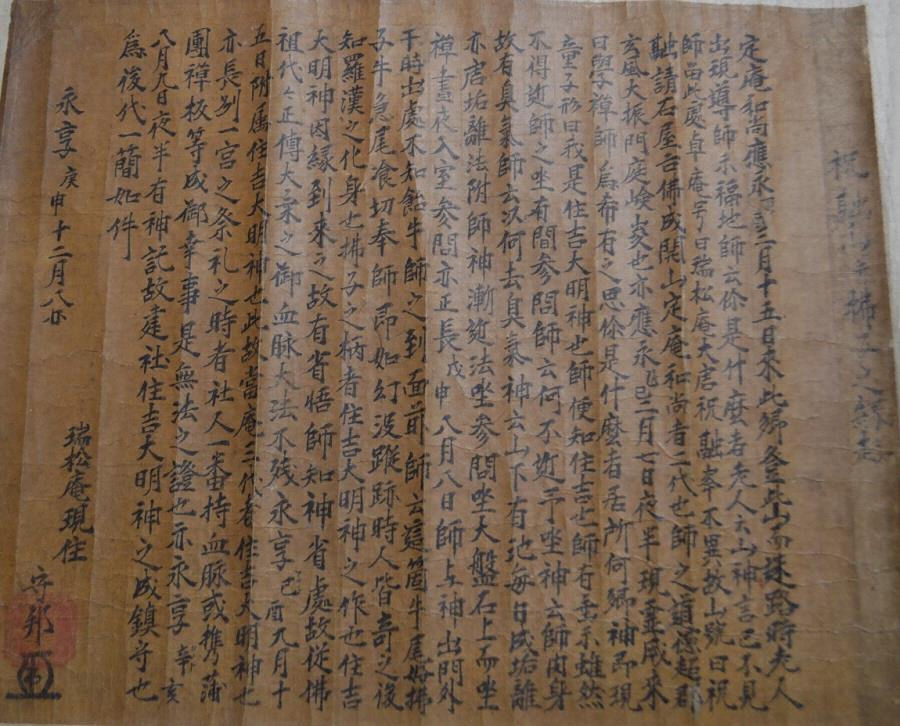 祝融山拂子之縁起
定庵和尚應永三月十五日来此郷登此山而迷路時老人
出現導師示福地師云你是什麼者老人云山神言已不見
師占此處卓庵号曰瑞松庵大唐祝融峯不異故山號曰祝
融請石屋古佛成開山定庵和尚者二代也師之道德超群
玄風大振門庭峻峻也亦應永己巳二月七日夜半現童成来
曰學禅師為希有之思你是什麼者居所何郷神即現
童子形曰我是住吉大明神也師便知住吉也師有垂示雖然
不得近師之坐有間參問師云何不近予坐神云師肉身
故有臭氣師云以何去臭氣神云山下有池每日成垢離
亦唐垢離法附師神漸近法坐參問坐大盤石上而坐
禅晝夜入室參問亦正長戊申八月八日師与神出門外
于時出處不知飴牛師之到面前師云這箇牛尾好拂
子牛急尾飡切奉師即如幻没蹤跡時人皆奇之後
知羅漢之化身也拂子之柄者住吉大明神之作也住吉
大明神因縁到来之故有省悟師知神省處故從拂
祖代々正傳大宋之御血脉大法不残永享己酉九月十
五日附属住吉大明神也此故當庵三代者住吉大明神也
亦長別一宮之祭礼之時者社人一番持血脉或携蒲
團禅板等成御幸事是無法之證也亦永享辛亥
八月九日夜半有神託故建社住吉大明神之成鎮守也
為後代一簡如件
永享庚申十二月八日
瑞松庵現住
守邦